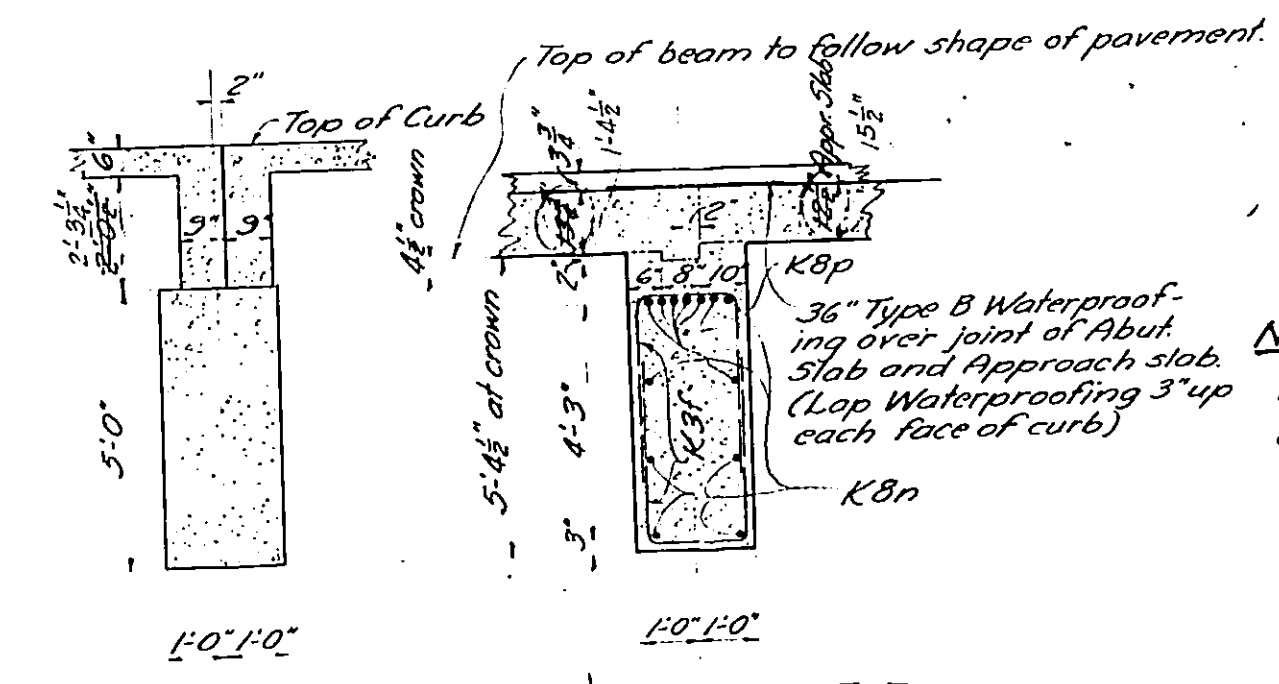 Top of beam to follow shape of pavement.
2"
Top of Curb
6"
2'-3 1/4"
9" 9"
5'-0"
1'-0" 1'-0"
4 1/2" crown
3 3/4"
1'-4 1/2"
Appr. Slab
15 1/2"
2"
2"
6" 8" 10"
K8p
36" Type B Waterproof-
ing over joint of Abut.
slab and Approach slab.
(Lap Waterproofing 3" up
each face of curb)
K3f
K8n
5'-4 1/2" at crown
4'-3"
3"
1'-0" 1'-0"